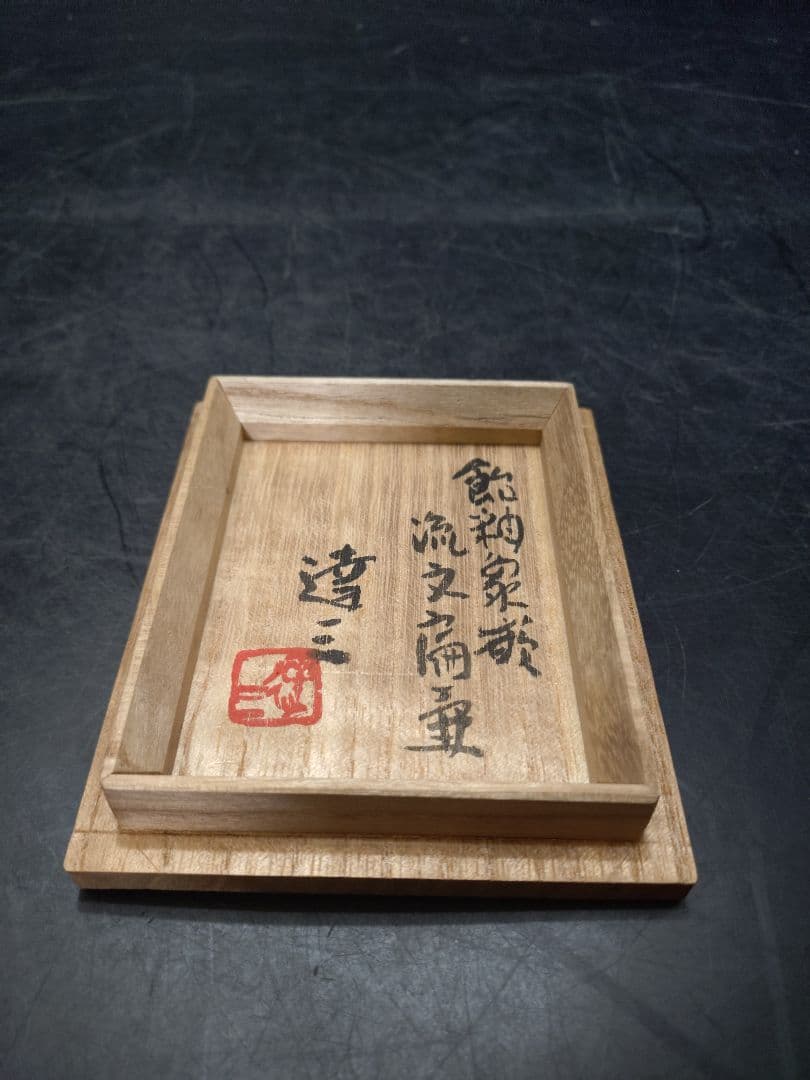 飴釉象嵌
流文扁壷
達三